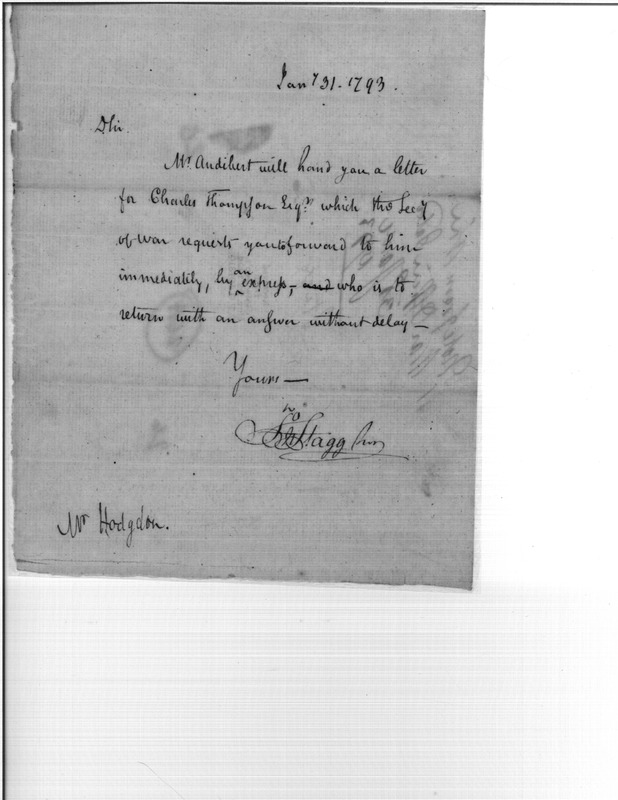 Jany 31. 1793.
DSir
Mr. Audibert will hand you a letter
for Charles Thompson Esqr. which the Secy
of War requests you to forward to him
immediately, by an express, and who is to
return with an answer without delay —
Yours —
Jno Stagg Junr
Mr Hodgdon.